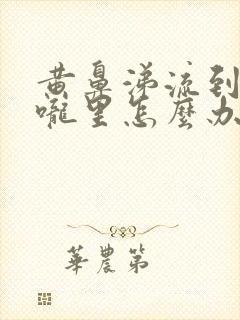 黄鼻涕流到
嚨里怎麼办
華農第